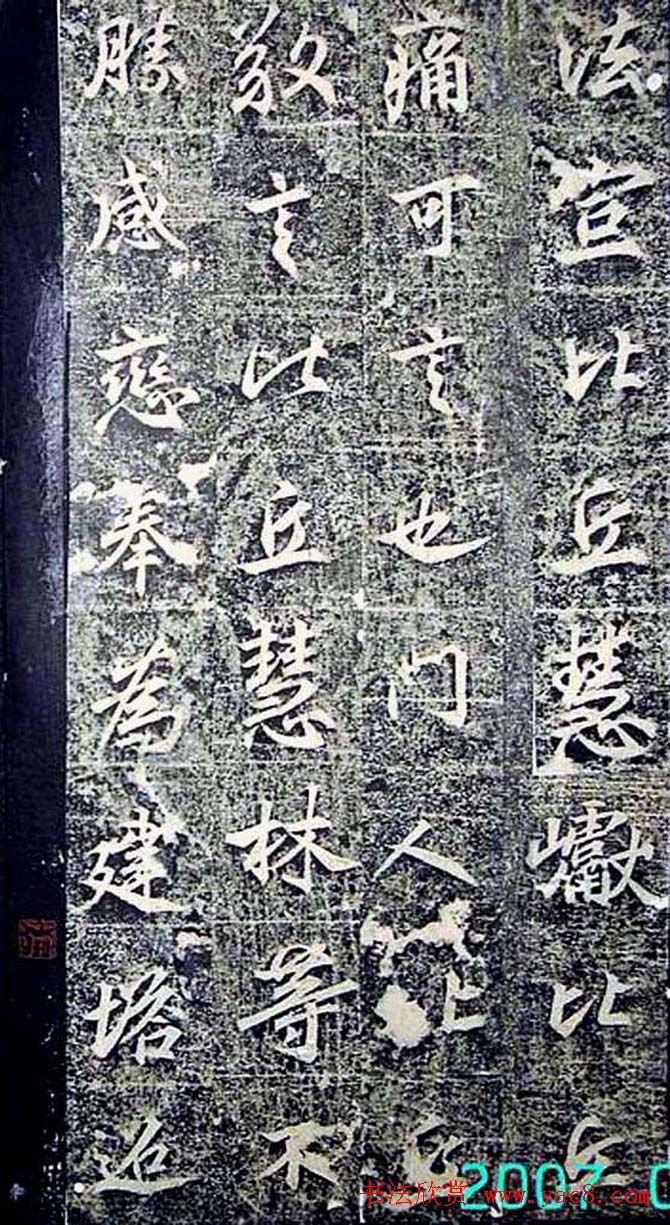 法宣比丘慧巘比丘
痛可言也門人比丘
敬言比丘慧林等不
勝感戀奉為建塔迢
2007 0
书法欣赏 www.yac8.com